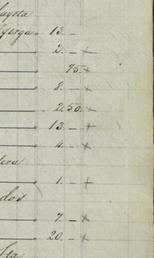 13. –
2. – +
75. +
8. – +
2,50. +
13. – +
4. – +
1. – +
dos
7. – +
20. – +